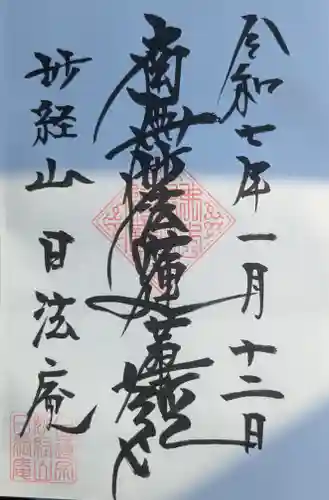 令和七年一月十二日
南無妙法蓮華経
妙経山日法庵